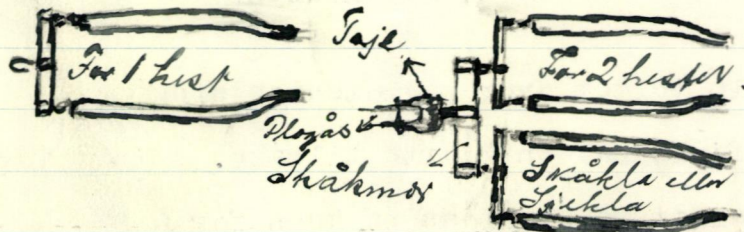 For 1 hest
Taje
Plogås
Skåkmor
For 2 hester
Skåkla eller
Sjekla